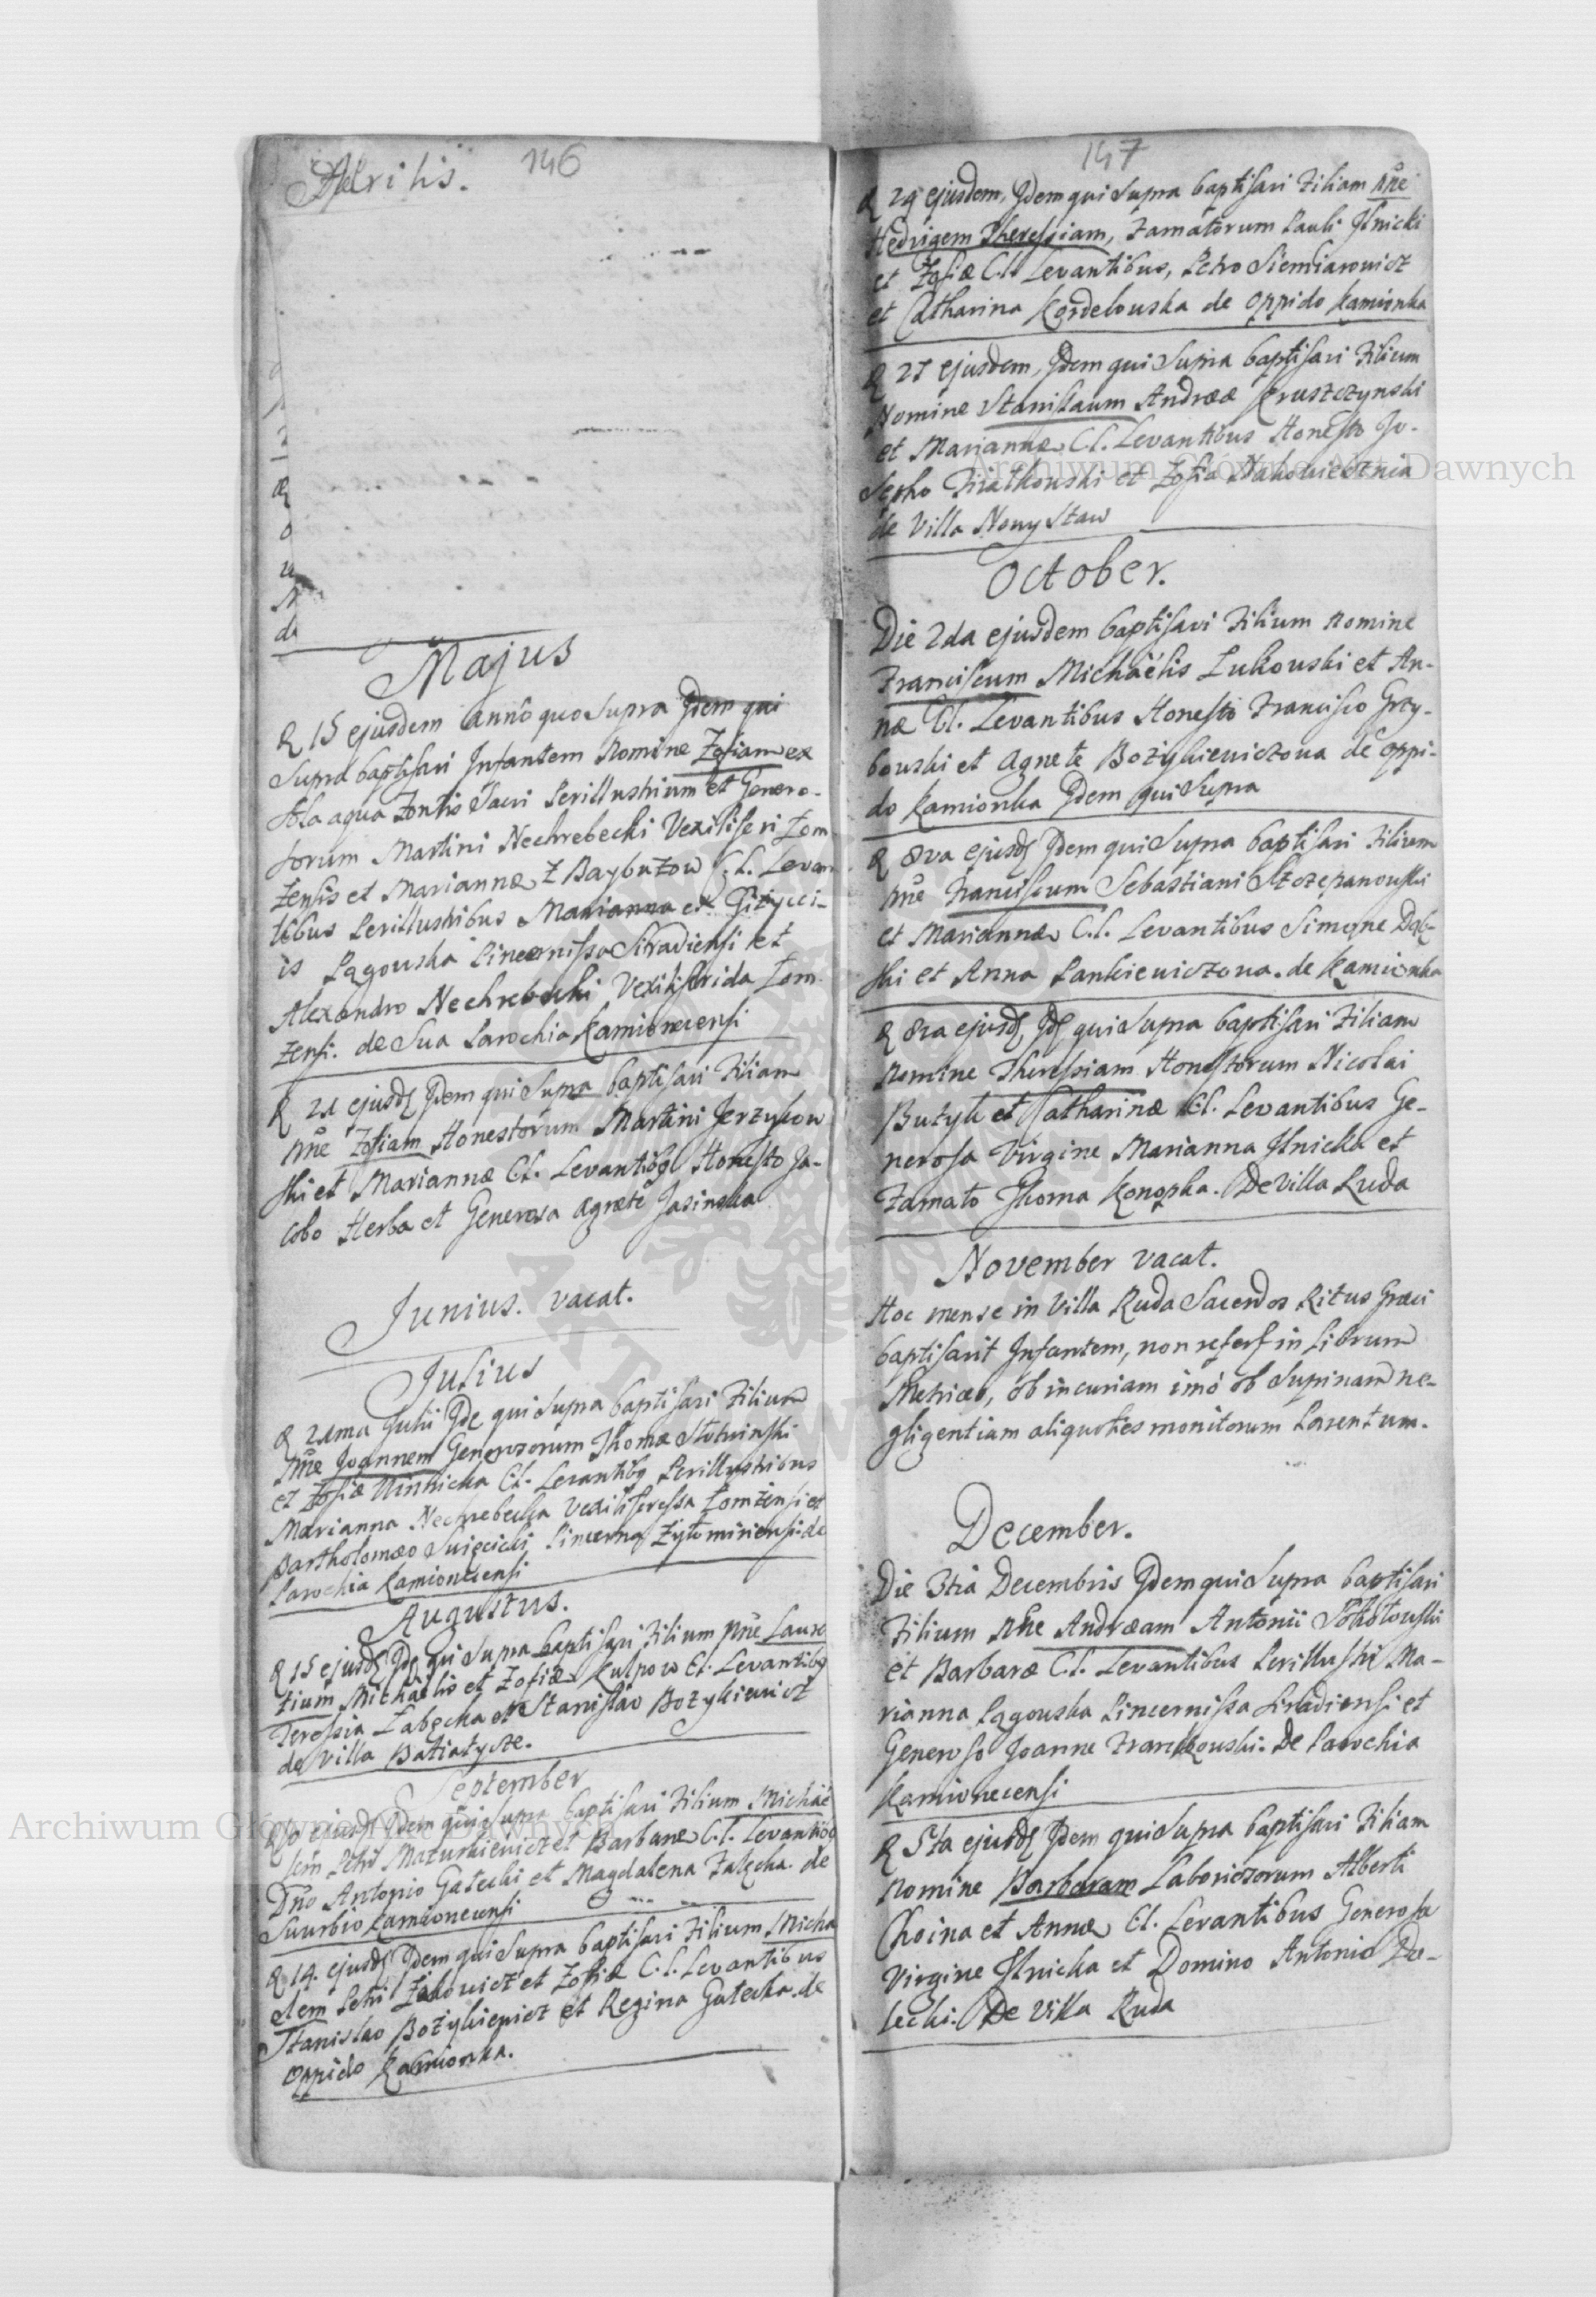 Aprilis.
146
Majus
15 ejusdem anno quo supra Jdem qui
Supra baptisavi Infantem Nomine Zofiam ex
sola aqua Fontis Sacri Perillustrium et Genero-
sorum Martini Nechrebecki Vexiliferi Łom
zensis et Mariannæ z Baybuzow C.L. Levan
tibus Perillustribus Marianna
is Łągouska Pincernissa Siradiensi et
Alexandro Nechrebecki Vexiliferida Łom
zensi. de Sua Parochia Kamionecensi
21 ejusd Jdem qui Supra baptisavi Filiam
nne Zofiam Honestorum Martini Jerzykow
ski et Mariannæ CL. Levantibq Honesto Ja-
cobo Herba et Generosa Agnete Jasinska
Junius. vacat.
Julius
21ma Julii Jde qui Supra baptisavi Filium
nne Joannem Generosorum Thomæ Slotwinski
et Zofiæ Winnicka CL. Levantibq Perillustribus
Marianna Nechrebecka Vexiliferessa Łomzensi et
Bartholomæo Swięcicki Pincerna Zytomiriensi de
Parochia Kamionecensi
Augustus.
15 ejusd Jde qui Supra baptisavi Filium nne Lauren
tium Michaelis et Zofiæ Kulpow CL. Levantibq
Teressia Zabęcka et Stanislao Bozykiewicz
de Villa Batiatycze.
September
ejusd Jdem qui supra baptisavi Filium Michaë
lem Petri Mazurkiewicz et Barbaræ C.L. Levantibq
Dno Antonio Gałecki et Magdalena Zalęcka. de
Suurbio Kamionecensi
14. ejusd Jdem qui Supra baptisavi Filium Micha
elem Petri et Zofiæ C.L. Levantibus
Stanislao Bozykiewicz et Regina Gałecka. de
Oppido Kamionka.
147
29 ejusdem, Jdem qui Supra baptisavi Filiam nne
Hedvigem Theressiam, Famatorum Pauli Jlnicki
et Zofiæ C.L. Levantibus, Petro Siemiarowicz
et Catharina Kordelouska de Oppido Kamionka
27 ejusdem, Jdem qui Supra baptisavi Filium
Nomine Stanislaum Andreæ Kruszczynski
et Mariannæ C.L. Levantibus Honesto Jo-
sepho Fiiatkouski et Zofia
de Villa Nowy Staw
October.
Die 2da ejusdem baptisavi Filium nomine
Franciscum Michaëlis Lukouski et An-
næ CL. Levantibus Honesto Francisco Grzy-
bouski et Agnete Bozykiewiczowa de Oppi-
do Kamionka Jdem qui Supra
8va ejusd Jdem qui Supra baptisavi Filium
nne Franciscum Sebastiani Szczepanouski
et Mariannæ C.L. Levantibus Simone Dąb-
ski et Anna Pankiewiczowa. de Kamionka
8va ejusd Jd qui Supra baptisavi Filiam
Nomine Theressiam Honestorum Nicolai
Butyk et Catharinæ CL. Levantibus Ge-
nerosa Virgine Marianna Jlnicka et
Famato Thoma Konopka. De Villa Ruda
November vacat.
Hoc mense in Villa Ruda Sacerdos Ritus Græci
baptisavit Infantem, non refert in Librum
Metrices, ob incuriam imò ob Supinam ne-
gligentiam aliquoties monitorum Parentum.
December.
Die 3tia Decembris Jdem qui Supra baptisavi
Filium nne Andræam Antonii Sokołouski
et Barbaræ C.L. Levantibus Perillustri Ma-
rianna Łągouska Pincernissa Siradiensi et
Generoso Joanne Franckouski. De Parochia
Kamionecensi
5ta ejusd Jdem qui Supra baptisavi Filiam
Nomine Barbaram Laboriosorum Alberti
Choina et Annæ CL. Levantibus Generosa
Virgine Jlnicka et Domino Antonio Da-
lecki. De Villa Ruda
Archiwum Główne Akt Dawnych
Archiwum Główne Akt Dawnych